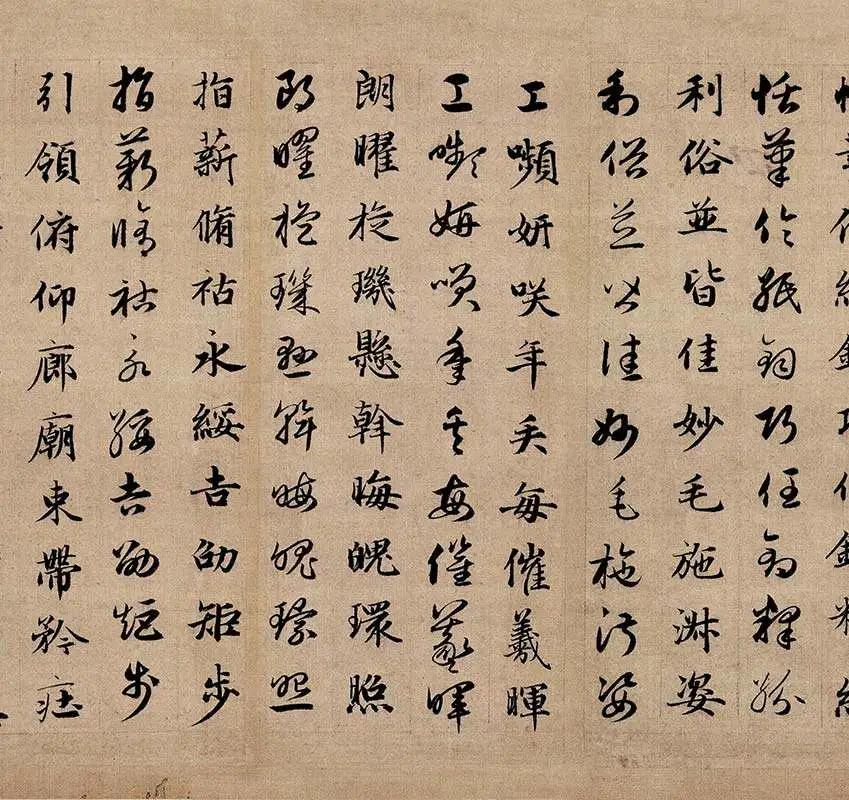 恬筆倫紙鈞巧任釣釋紛
利俗並皆佳妙毛施淑姿
利俗並皆佳妙毛施淑姿
工嚬妍咲年矢每催羲暉
工嚬妍咲年矢每催羲暉
朗曜旋璣懸斡晦魄環照
朗曜旋璣懸斡晦魄環照
指薪脩祜永綏吉劭矩步
指薪脩祜永綏吉劭矩步
引領俯仰廊廟束帶矜莊